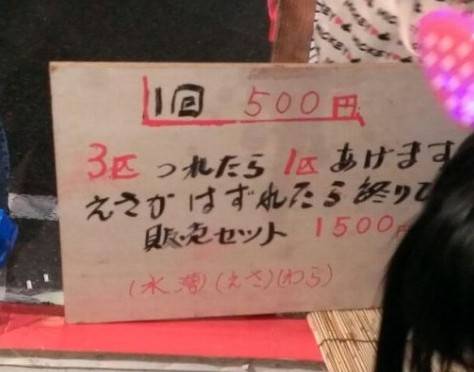 1回 500円
3匹 つれたら 1匹 あげます
えさが はずれたら 終りで
販売セット 1500円
(水槽)(えさ)(わら)